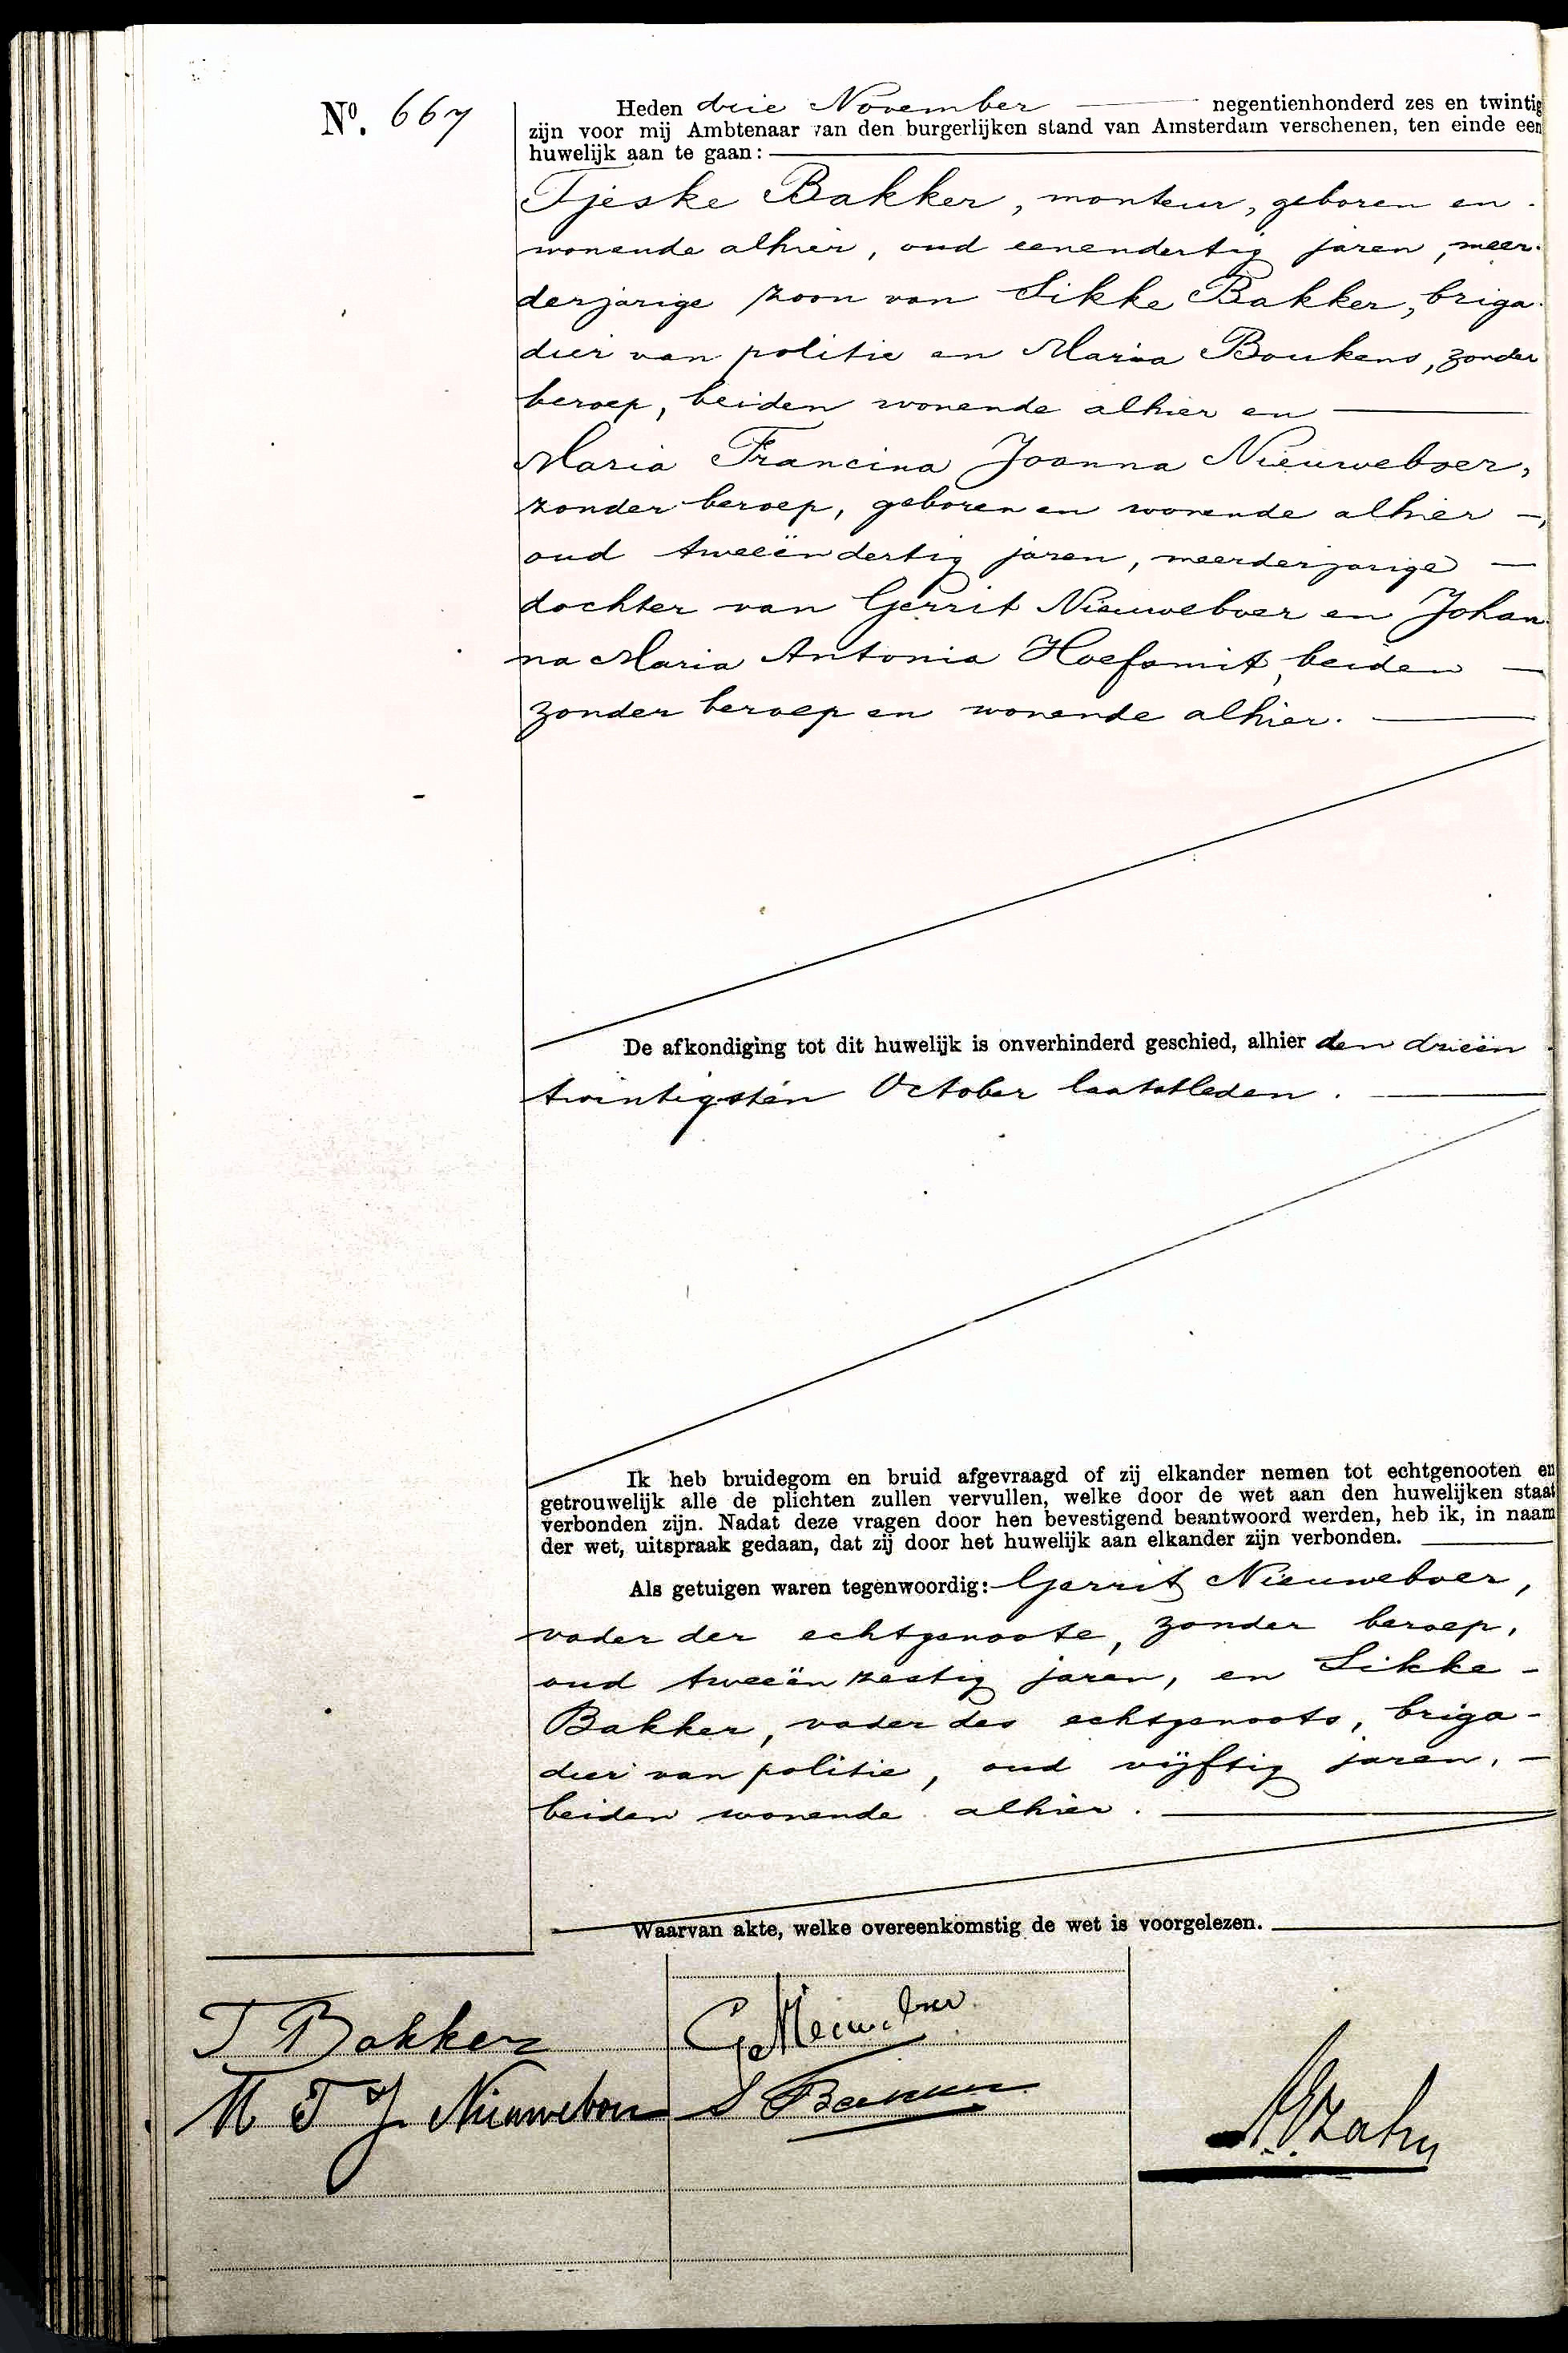 No. 667
Heden drie November negentienhonderd zes en twintig
zijn voor mij Ambtenaar van den burgerlijken stand van Amsterdam verschenen, ten einde een
huwelijk aan te gaan:
Tjeske Bakker, monteur, geboren en
wonende alhier, oud eenendertig jaren, meer-
derjarige zoon van Sikke Bakker, briga-
dier van politie en Maria Boukens, zonder
beroep, beiden wonende alhier en
Maria Francina Joanna Nieuweboer,
zonder beroep, geboren en wonende alhier,
oud tweeëndertig jaren, meerderjarige
dochter van Gerrit Nieuweboer en Johan-
na Maria Antonia Hoefsmit, beiden
zonder beroep en wonende alhier.
De afkondiging tot dit huwelijk is onverhinderd geschied, alhier den drieën
twintigsten October laatstleden.
Ik heb bruidegom en bruid afgevraagd of zij elkander nemen tot echtgenooten en
getrouwelijk alle de plichten zullen vervullen, welke door de wet aan den huwelijken staat
verbonden zijn. Nadat deze vragen door hen bevestigend beantwoord werden, heb ik, in naam
der wet, uitspraak gedaan, dat zij door het huwelijk aan elkander zijn verbonden.
Als getuigen waren tegenwoordig: Gerrit Nieuweboer,
vader der echtgenoote, zonder beroep,
oud tweeënzestig jaren, en Sikke
Bakker, vader des echtgenoots, briga-
dier van politie, oud vijftig jaren,
beiden wonende alhier.
Waarvan akte, welke overeenkomstig de wet is voorgelezen.
T Bakker
G Nieuweboer
M F J Nieuweboer
S Bakker